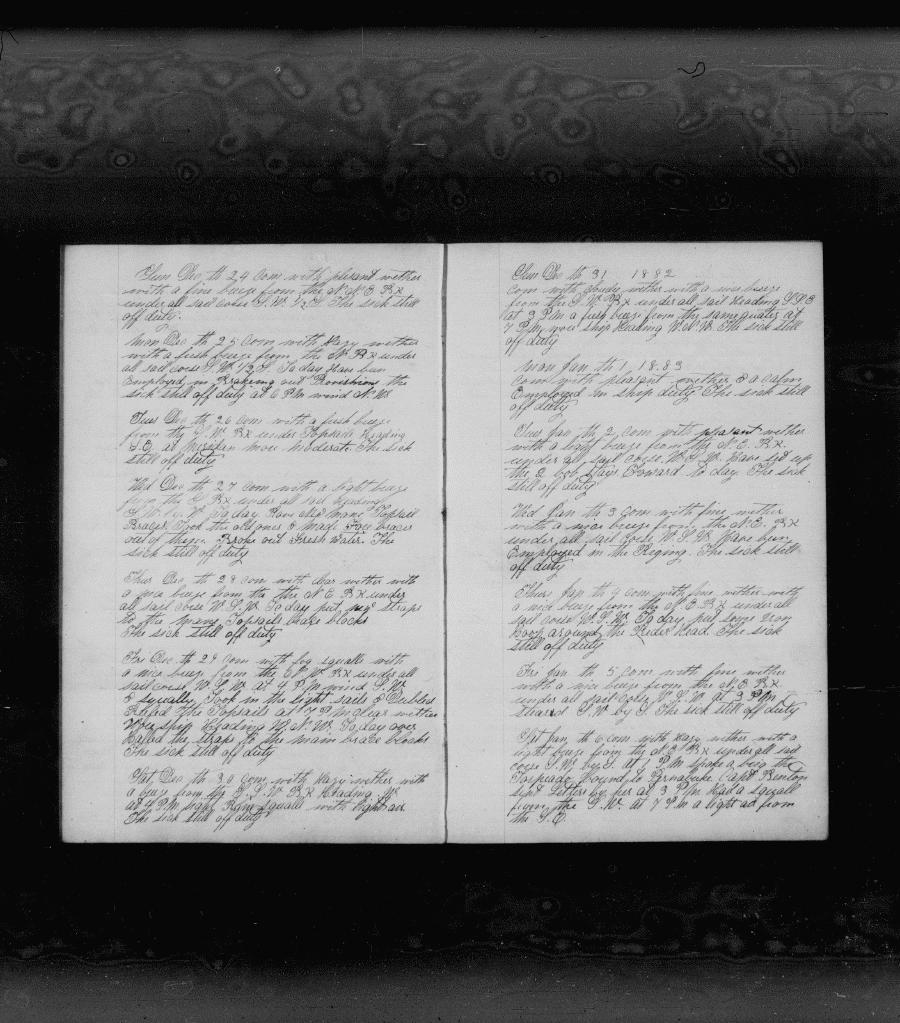 Sun Dec th 24 Com with plesant wether
with a fine breze from the N.N.E. Bx
under all sail corse S.W. 1/2 S The sick still
off duty.
Mon Dec th 25 Com with Hazy wether
with a fresh breze from the N. Bx under
all sail corse S.W. 1/2 S. To day Have ben
Employed in Braking out Provishins the
sick still off duty at 6 P.M wind N.W.
Tues Dec th 26 Com with a fresh breze
from the S.W. Bx under Topsails Heading
S.E. at more moderate. The sick
still off duty
Wed Dec th 27 Com with a light breze
from the S Bx under all sail heading
S.W. by W. To day Rove new Mane Topsail
Braces Took the old ones & made Fore braces
out of them. Broke out Fresh Water. The
sick still off duty
Thurs Dec th 28 Com with clear wether with
a nice breze from the the N.E. Bx under
all sail corse W.S.W. To day put new straps
to the mane Topsails brace blocks
The sick still off duty
Fri Dec th 29 Com with fog squalls with
a nice breze from the E.N.E. Bx under all
sail corse W.S.W. at 4 P.M wind S.W.
& squally Took in the light sails & Dubbel
Reefed the Topsails at 7 P.M clear wether
Wore ship Heading W.N.W. To day over
haled the straps to the main brace blocks
The sick still off duty
Sat Dec th 30 Com with Hazy wether with
a breze from the S.S.W. Bx Heading W.
at 4 P.M Rain squalls with light air.
The sick still off duty
Sun Dec th 31 1882
Com with goude wether with a nice breze
from the S.W. Bx under all sail Heading S.S.E
at 3 P.M a fresh breze from the same quater at
7 P.M wore ship Heading W.N.W. The sick still
off duty
Mon Jan th 1, 1883
Com with plesant wether & a calm
Employed in ship duty The sick still
off duty
Tues Jan th 2 Com with plesant wether
with a light breze from the N.E. Bx
under all sail corse W.S.W. Have set up
the 2 bob stays Foward to day. The sick
still off duty
Wed Jan th 3 Com with fine wether
with a nice breze from the N.E. Bx
under all sail corse W.S.W. Have ben
Employed in the Riging. The sick still
off duty
Thurs Jan th 4 Com with fine wether with
a nice breze from the N.E. Bx under all
sail corse W.S.W. To day put some iron
hoop around the Ruder Head. The sick
still off duty
Fri Jan th 5 Com with fine wether
with a nice breze from the N.E. Bx
under all sail corse W.S.W at 3 P.M
steard S.W. by S. The sick still off duty
Sat Jan th 6 Com with Hazy wether with a
light breze from the N.E. Bx under all sail
corse S.W. by S. at 1 P.M spoke a barg the
bound to Capt Benton
sent letters by her at 3 P.M Had a squall
from the S.W. at 7 P.M a light air from
the S.E.